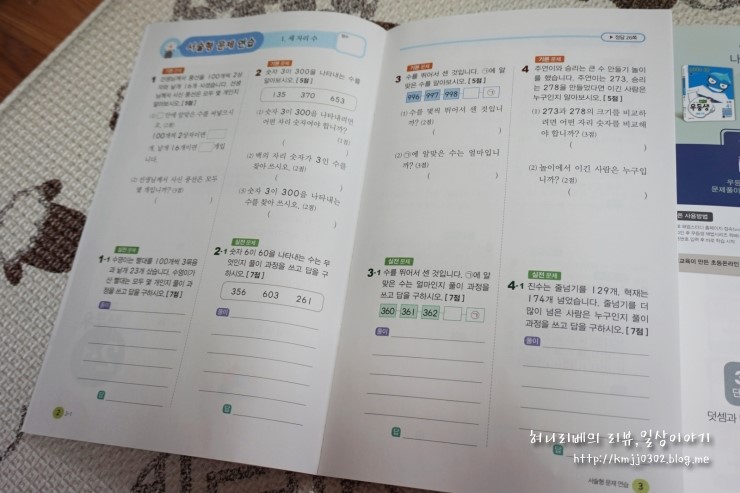 서술형 문제 연습
1. 세 자리 수
기본 문제
1 선생님께서 풍선을 100개씩 2상
자와 낱개 16개 사셨습니다. 선생
님께서 사신 풍선은 모두 몇 개인지
알아보시오. [5점]
(1) 안에 알맞은 수를 써넣으시
오. (2점)
100개씩 2상자이면
개, 낱개 16개이면 개입
니다.
(2) 선생님께서 사신 풍선은 모두
몇 개입니까? (3점)
( )
실전 문제
1-1 수영이는 빨대를 100개씩 3묶음
과 낱개 23개 샀습니다. 수영이가
산 빨대는 모두 몇 개인지 풀이 과정
을 쓰고 답을 구하시오. [7점]
풀이
답
기본 문제
2 숫자 3이 300을 나타내는 수를
알아보시오. [5점]
135 370 653
(1) 숫자 3이 300을 나타내려면
어떤 자리 숫자여야 합니까?
(1점)
( )
(2) 백의 자리 숫자가 3인 수를
찾아 쓰시오. (2점)
( )
(3) 숫자 3이 300을 나타내는
수를 찾아 쓰시오. (2점)
( )
실전 문제
2-1 숫자 6이 60을 나타내는 수는 무
엇인지 풀이 과정을 쓰고 답을 구
하시오. [7점]
356 603 261
풀이
답
2
정답 26쪽
기본 문제
3 수를 뛰어서 센 것입니다. ㉠에 알
맞은 수를 알아보시오. [5점]
996 997 998 ㉠
(1) 수를 몇씩 뛰어서 센 것입니
까? (3점)
( )
(2) ㉠에 알맞은 수는 얼마입니
까? (2점)
( )
실전 문제
3-1 수를 뛰어서 센 것입니다. ㉠에 알
맞은 수는 얼마인지 풀이 과정을
쓰고 답을 구하시오. [7점]
360 361 362 ㉠
풀이
답
기본 문제
4 주연이와 승리는 큰 수 만들기 놀이
를 했습니다. 주연이는 273, 승리
는 278을 만들었다면 이긴 사람은
누구인지 알아보시오. [5점]
(1) 273과 278의 크기를 비교하
려면 어떤 자리 숫자를 비교해
야 합니까? (3점)
( )
(2) 놀이에서 이긴 사람은 누구입
니까? (2점)
( )
실전 문제
4-1 진수는 줄넘기를 129개, 혁재는
174개 넘었습니다. 줄넘기를 더
많이 넘은 사람은 누구인지 풀이
과정을 쓰고 답을 구하시오. [7점]
풀이
답
서술형 문제 연습 3
나
우등생
사용방법
교육이 만든 초등온라인
3
단
덧셈과
허니리베의 리뷰,일상이야기
http://kmjj0302.blog.me